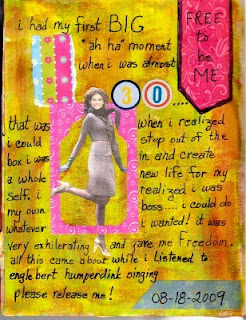 i had my first BIG
"ah ha" moment
when i was almost
30....
FREE
to
be
ME
that was when i realized
i could step out of the
box i was in and create
a whole new life for my
self. i realized i was
my own boss... i could do
whatever i wanted! it was
very exhilerating and gave me freedom.
all this came about while i listened to
englebert humperdink singing
please release me!
08-18-2009